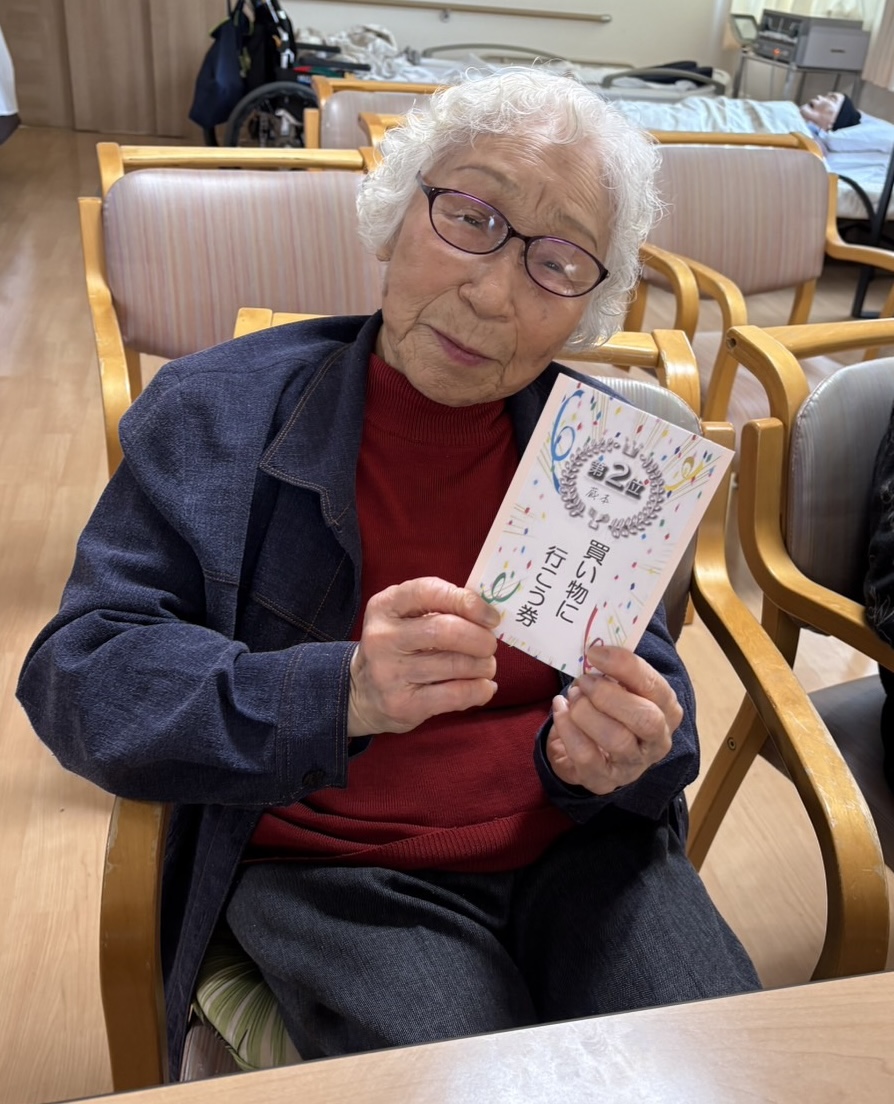 第2位
買い物に
行こう券